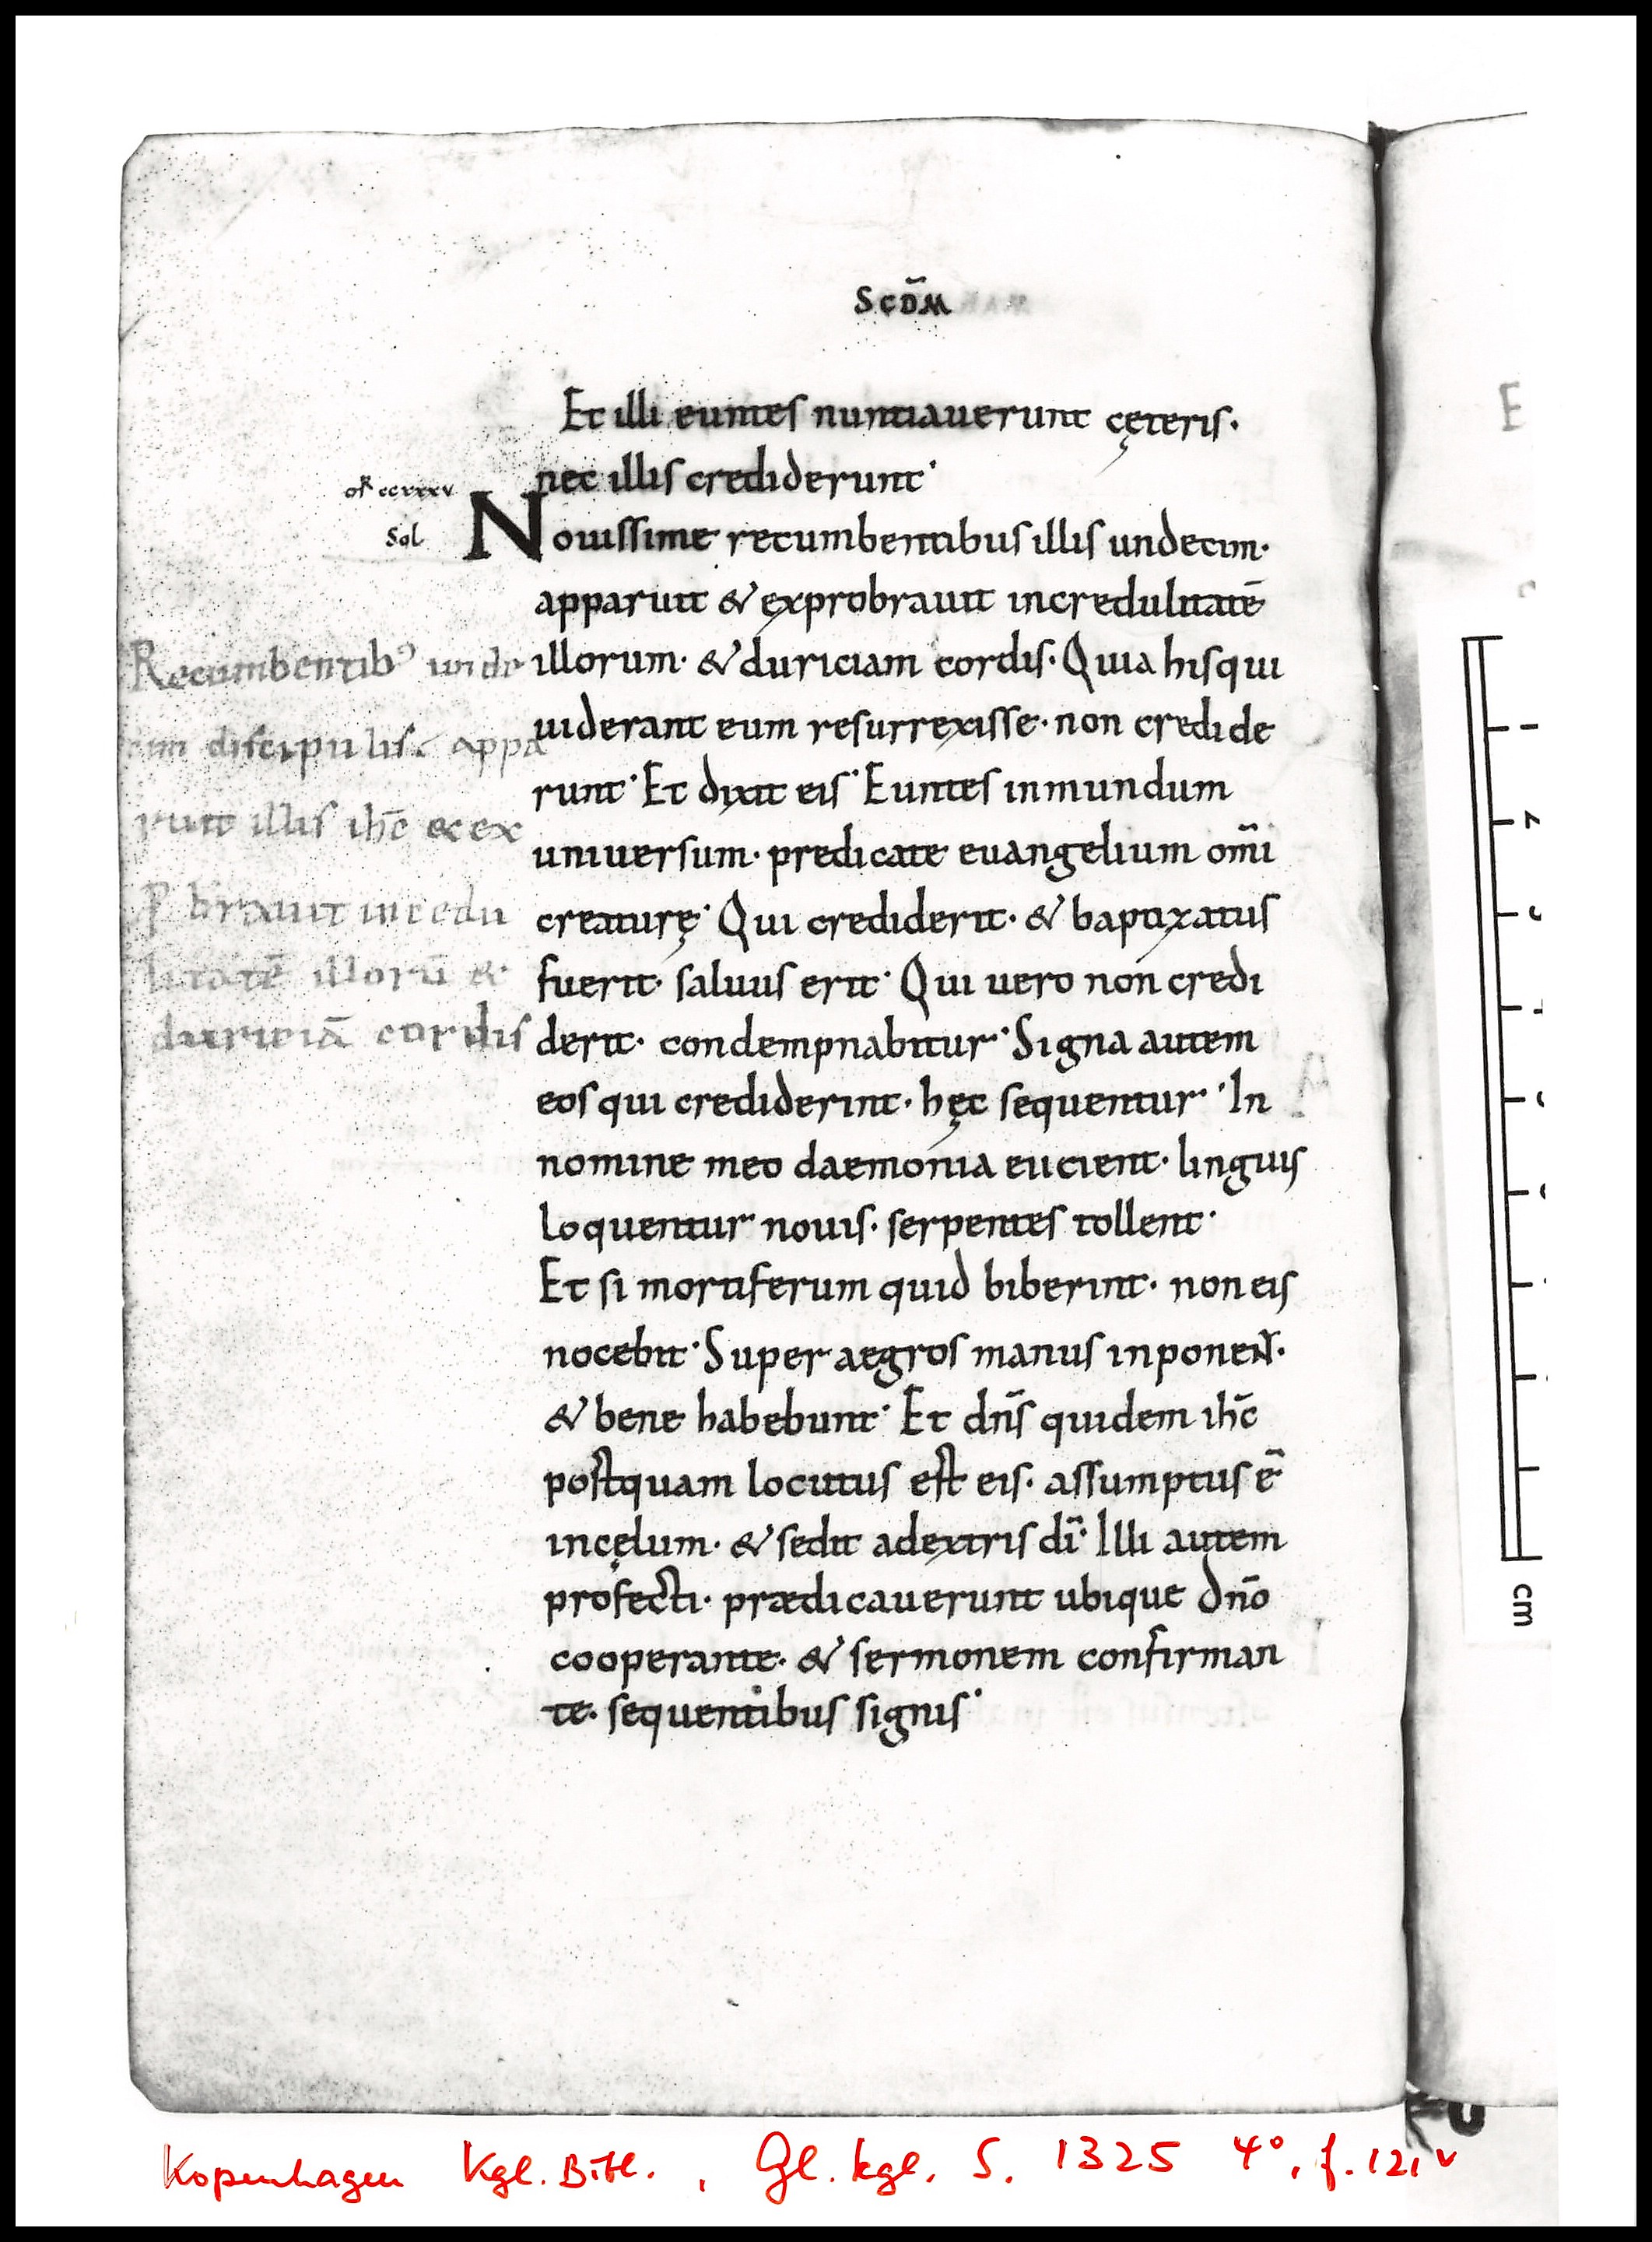 SCDM̄
Et illi euntes nuntiauerunt cęteris·
nec illis crediderunt·
oR̄ ccxxxv
Sol
Nouissime recumbentibus illis undecim·
apparuit & exprobrauit incredulitatē
illorum· & duriciam cordis· Quia his qui
uiderant eum resurrexisse· non credide
runt· Et dixit eis· Euntes in mundum
uniuersum· predicate euangelium om̄i
creaturę· Qui crediderit· & baptizatus
fuerit· saluus erit· Qui uero non credi
derit· condempnabitur· Signa autem
eos qui crediderint· hęc sequentur· In
nomine meo daemonia eicient· linguis
loquentur nouis· serpentes tollent·
Et si mortiferum quid biberint· non eis
nocebit· Super aegros manus inponent·
& bene habebunt· Et dn̄s quidem ih̄c
postquam locutus est eis· assumptus ē
in cęlum· & sedit a dextris dī· Illi autem
profecti· prædicauerunt ubique dn̄o
cooperante· & sermonem confirman
te· sequentibus signis·
Recumbentibꝰ unde
cim discipulis· appa
ruit illis ih̄c & ex
ꝓbrauit incredu
litatē illorū &
duriciā cordis
cm
Kopenhagen Kgl. Bibl., Gl. kgl. S. 1325 4°, f. 121v